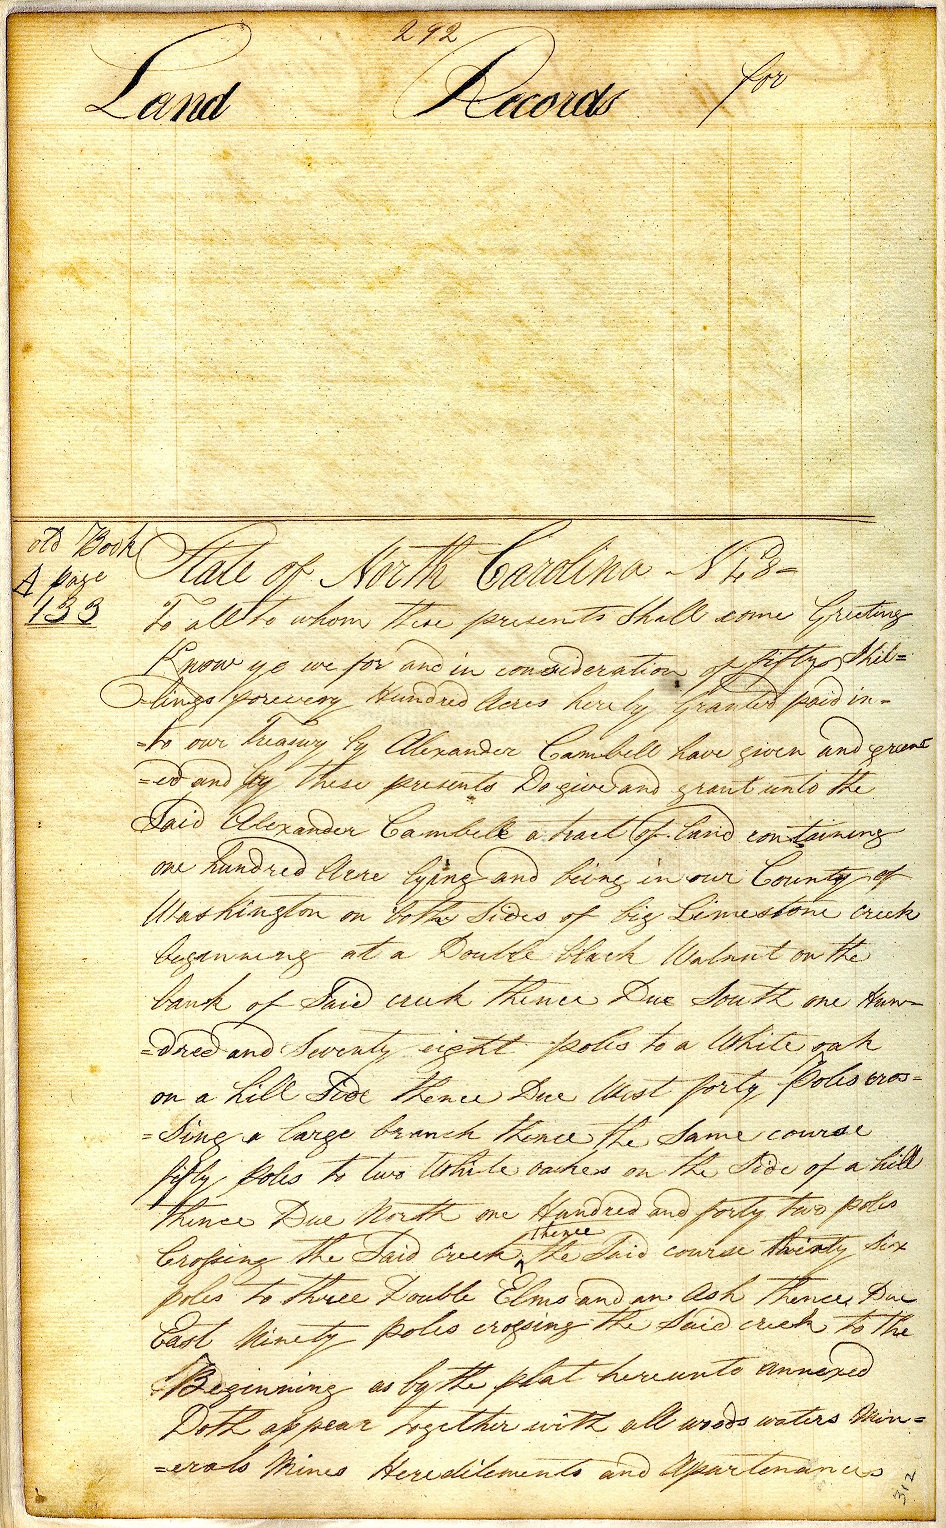 292
Land Records for
old Book
A page
133
State of North Carolina N 48=
To all to whom these presents Shall come Greeting
Know ye we for and in consideration of fifty Shil=
=lings for every Hundred Acres hereby Granted paid in=
=to our Treasury by Alexander Cambell have given and grant
=ed and by these presents Do give and grant unto the
Said Alexander Cambell a tract of land containing
one hundred Acre lying and being in our County of
Washington on both Sides of big Limestone creek
beginning at a Double black Walnut on the
bank of Said creek thence Due South one Hun=
=dred and Seventy eight poles to a White oak
on a hill Side thence Due West forty Poles cros=
=sing a large branch thence the Same course
fifty poles to two White oakes on the Side of a hill
thence Due North one Hundred and forty two poles
Crossing the Said creek thence the Said course thirty Six
poles to three Double Elms and an Ash thence Due
East Ninety poles crossing the Said creek to the
Beginning as by the plat hereunto annexed
Doth appear together with all woods waters Min=
=erals Mines Hereditements and Apartenances
312